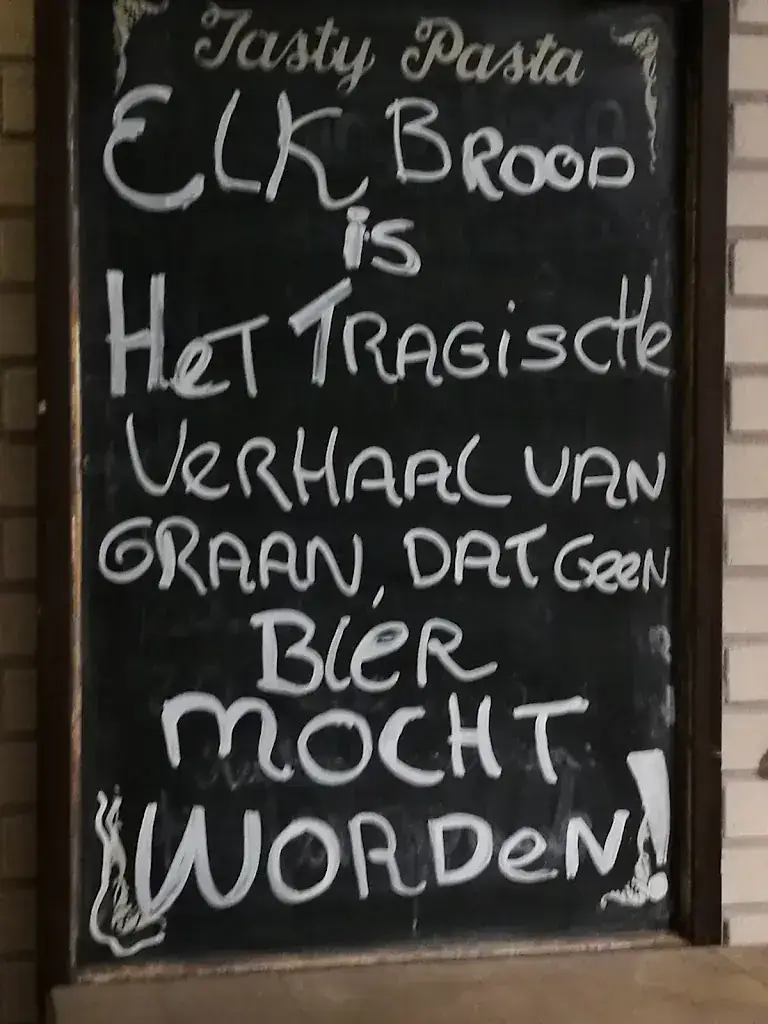 Tasty Pasta
ELK BROOD
is
HeT TRAGiscHe
VeRHAAL VAN
GRAAN, DAT GeeN
BIeR
MOCHT
WORDeN!